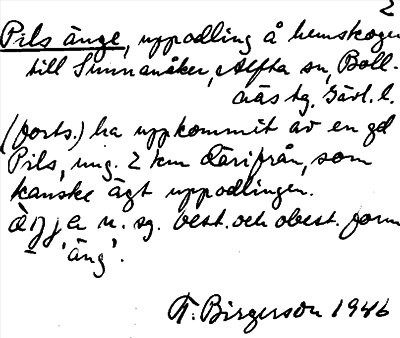 2
Pils änge, uppodling å hemskogen
till Sunnanåker, Alfta sn, Boll-
näs tg. Gävl. l.
(forts.) ha uppkommit av en gd
Pils, ung. 2 km därifrån, som
kanske ägt uppodlingen.
n. sg. best. och obest. form
'äng'.
F. Birgerson 1946